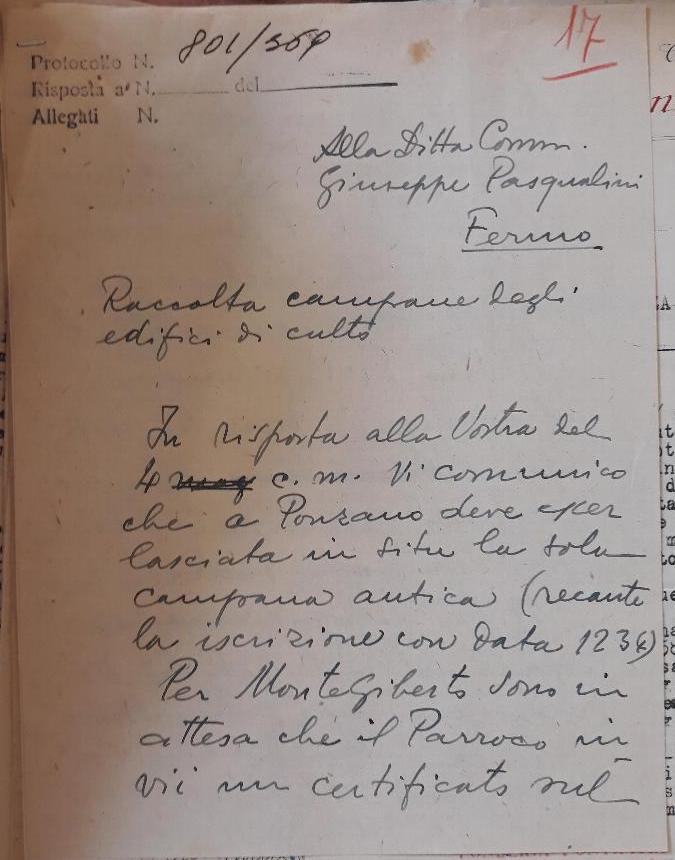 17
Protocollo N. 801/369
Risposta a N. del
Alleghti N.
Alla Ditta Comm.
Giuseppe Pasqualini
Fermo
Raccolta campane degli
edifici di culto
In risposta alla Vostra del
4 mag c. m. Vi comunico
che a Ponzano deve esser
lasciata in situ la sola
campana antica (recante
la iscrizione con data 1236)
Per MonteGiberto sono in
attesa che il Parroco in-
vii un certificato sul